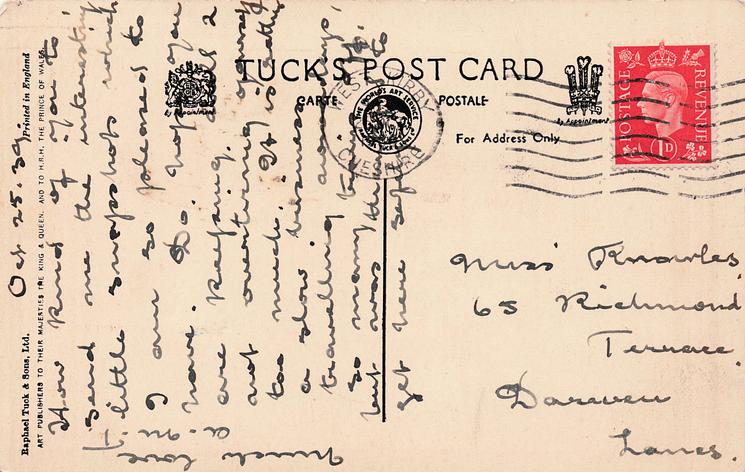 TUCK'S POST CARD
CARTE POSTALE
For Address Only
By Appointment
By Appointment
THE WORLD'S ART SERVICE
CHESHIRE
POSTAGE
REVENUE
1D
Raphael Tuck & Sons, Ltd. Printed in England
ART PUBLISHERS TO THEIR MAJESTIES THE KING & QUEEN, AND TO H.R.H. THE PRINCE OF WALES.
Oct 25. 39
How kind of you to
send me the interesting
little snapshots which
I am so pleased to
have. Do hope you
are keeping &
not overtiring yourself
too much. It is rather
a slow business
travelling nowadays,
so many
but was thankful to
get here safely
Much love
Miss Knowles
65 Richmond
Terrace
Darwen
Lancs.